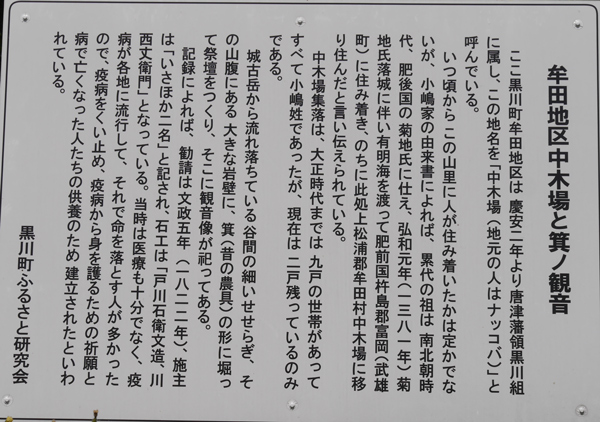 牟田地区中木場と箕ノ観音
ここ黒川町牟田地区は 慶安二年より唐津藩領黒川組
に属し、この地名を「中木場（地元の人はナッコバ）」と
呼んでいる。
いつ頃から この山里に人が住み着いたかは定かでな
いが、小嶋家の由来書によれば、累代の祖は 南北朝時
代、肥後国の 菊地氏に仕え、弘和元年（一三八一年）菊
地氏落城に伴い有明海を渡って肥前国杵島郡富岡（武雄
町）に住み着き、のちに此処上松浦郡牟田村中木場に移
り住んだと言い伝えられている。
中木場集落は、大正時代までは 九戸の世帯があって
すべて小嶋姓であったが、現在は 二戸残っているのみ
である。
城古岳から流れ落ちている谷間の細いせせらぎ、そ
の山腹にある 大きな岩壁に、箕（昔の農具）の形に掘っ
て祭壇をつくり、そこに観音像が祀ってある。
記録によれば、勧請は文政五年（一八二二年）、施主
は「いさほか二名」と記され、石工は「戸川石衛文造、川
西丈衛門」となっている。当時は医療も十分でなく、疫
病が各地に流行して、それで命を落とす人が多かった
ので、疫病をくい止め、疫病から身を護るための祈願と
病で亡くなった人たちの供養のため 建立されたといわ
れている。
黒川町ふるさと研究会